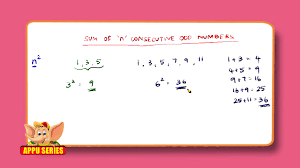 SUM OF 'n' CONSECUTIVE ODD NUMBERS
n²
1, 3, 5
3² = 9
1, 3, 5, 7, 9, 11
6² = 36
1 + 3 = 4
4 + 5 = 9
9 + 7 = 16
16 + 9 = 25
25 + 11 = 36
APPU SERIES